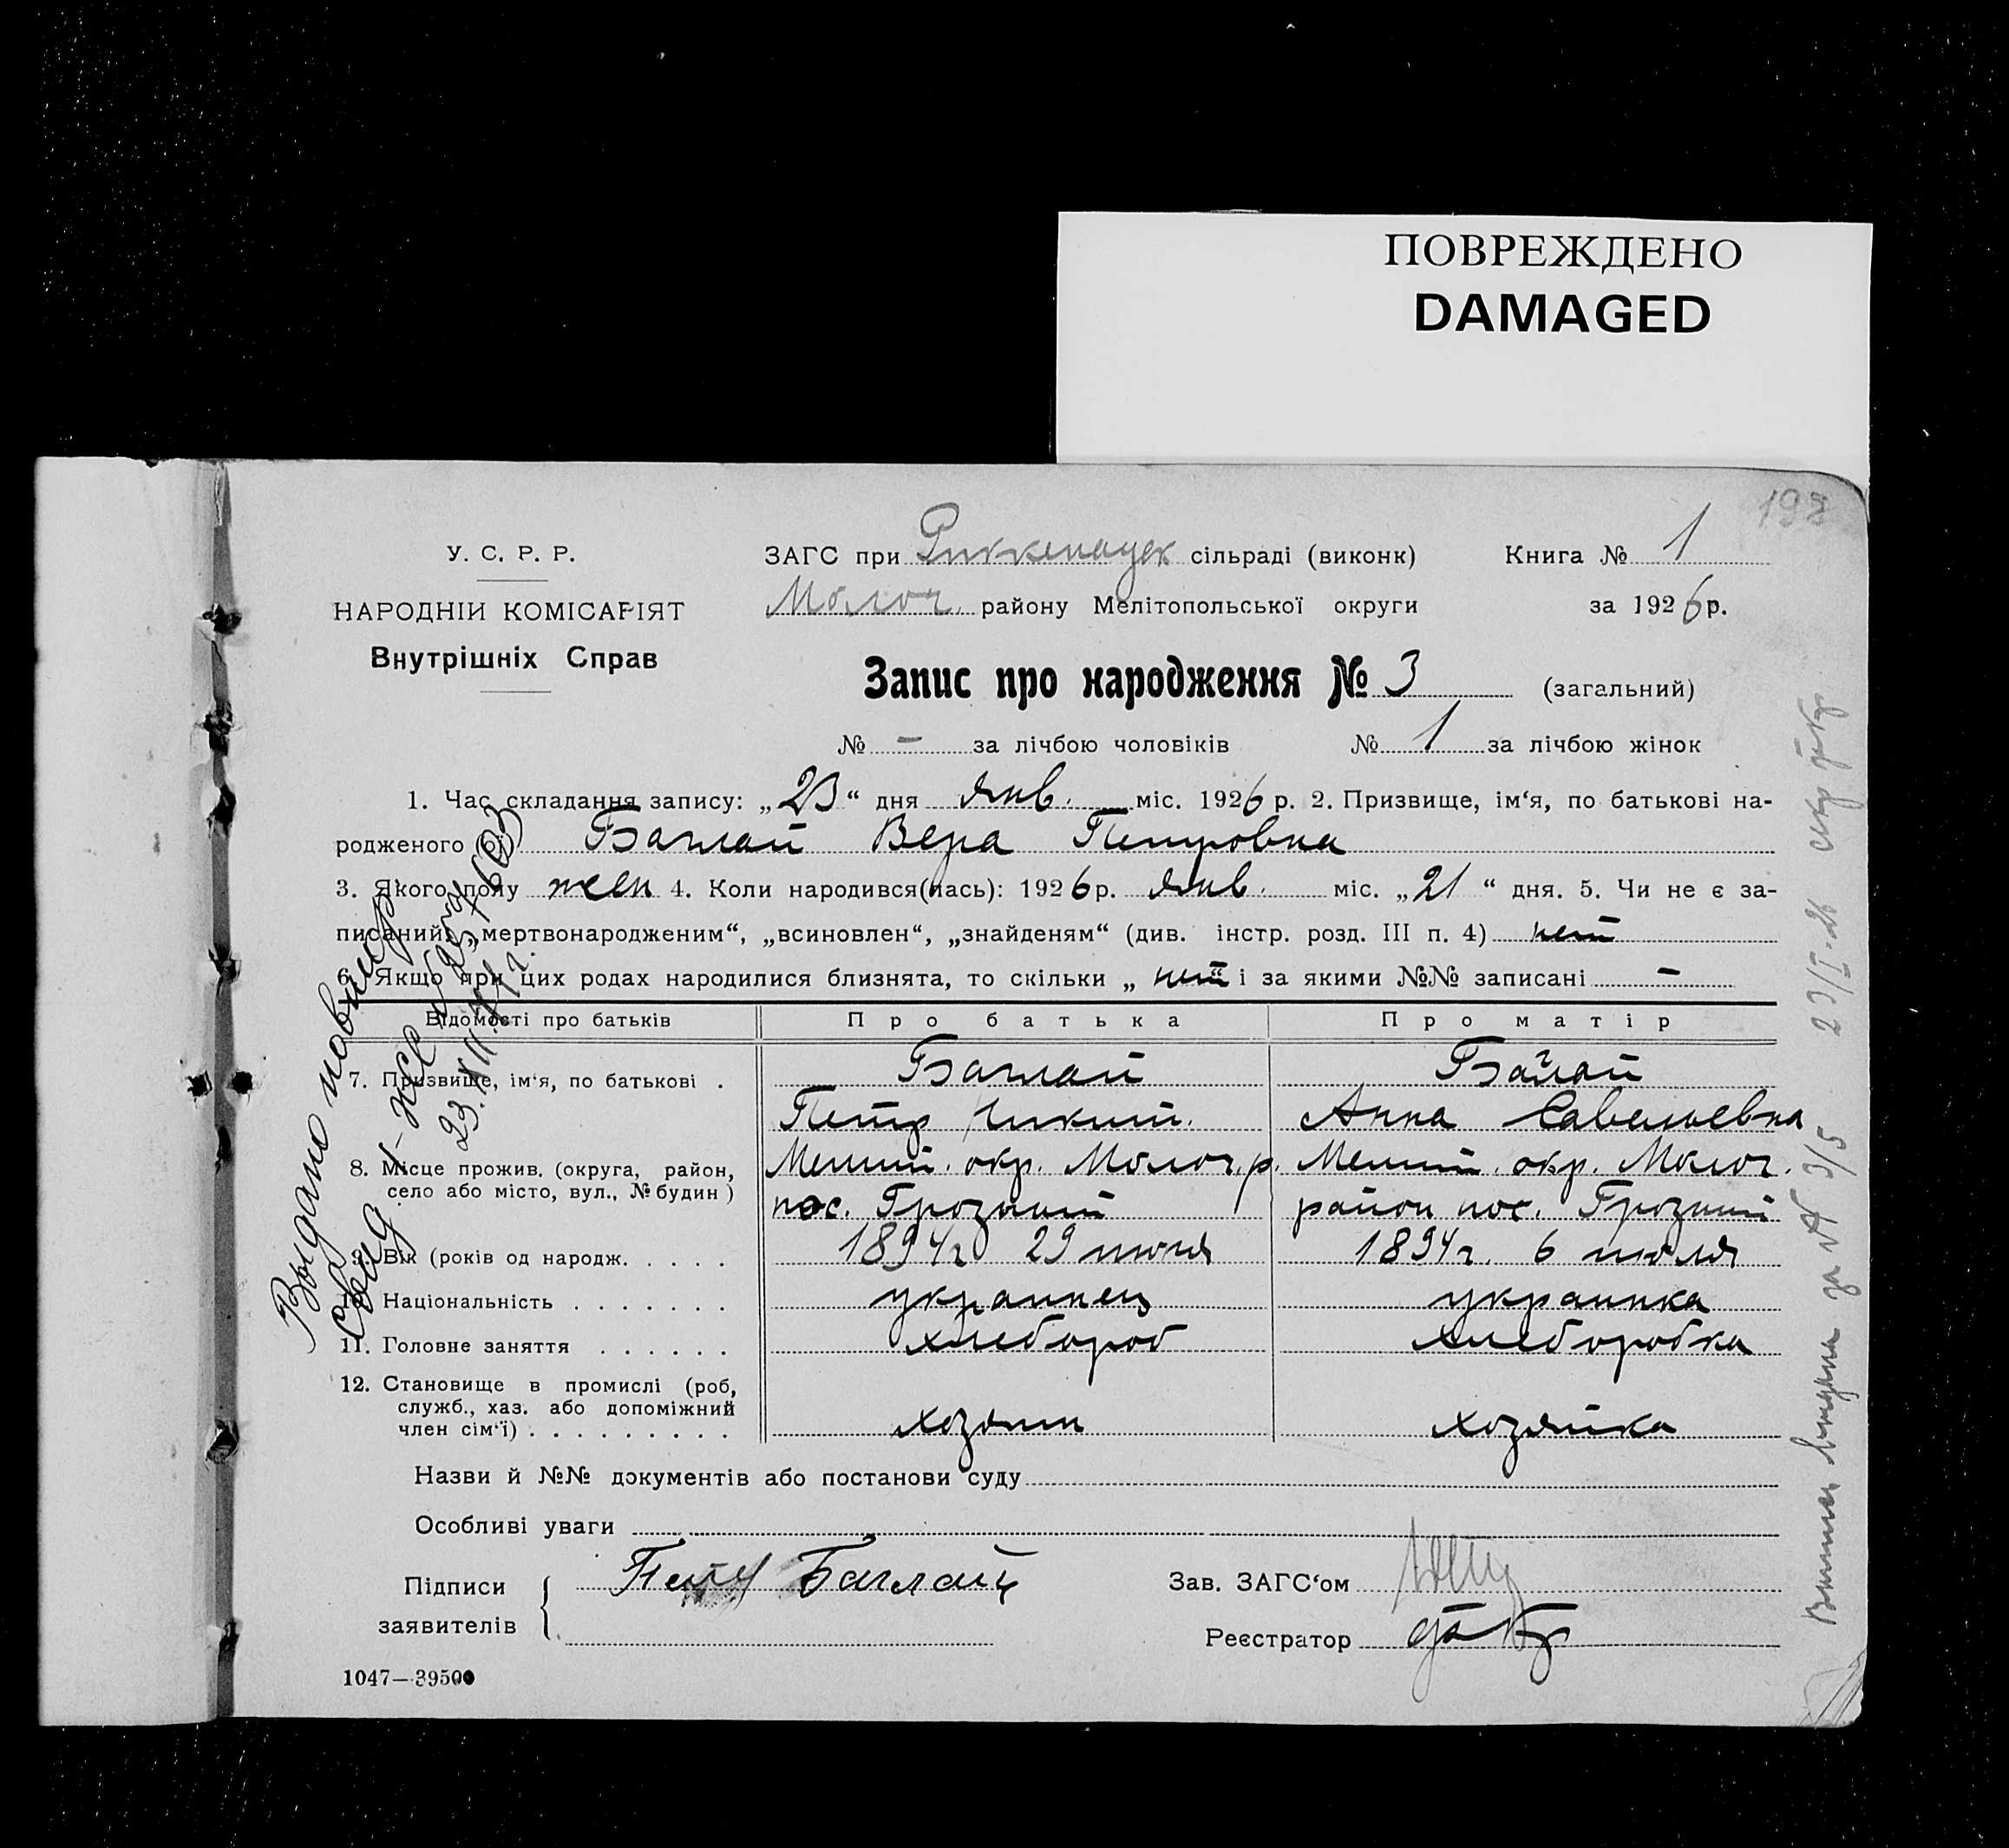 ПОВРЕЖДЕНО
DAMAGED
198
У. С. Р. Р.
НАРОДНІЙ КОМІСАРІЯТ
Внутрішніх Справ
ЗАГС при Риккенауск сільраді (виконк) Книга № 1
Молоч. району Мелітопольської округи за 1926 р.
Запис про народження № 3 (загальний)
№ – за лічбою чоловіків № 1 за лічбою жінок
1. Час складання запису: „23“ дня янв. міс. 1926 р. 2. Призвище, ім‘я, по батькові на-
родженого Баглай Вера Петровна
3. Якого полу жен 4. Коли народився(лась): 1926 р. янв. міс. „21“ дня. 5. Чи не є за-
писаний: „мертвонародженим“, „всиновлен“, „знайденям“ (див. інстр. розд. III п. 4) нет
6. Якщо при цих родах народилися близнята, то скільки „нет“ і за якими №№ записані –
Відомості про батьків Про батька Про матір
7. Призвище, ім‘я, по батькові . Баглай Баглай
Петр Никит. Анна Савельевна
8. Місце прожив. (округа, район, село або місто, вул., № будин) Мелит. окр. Молоч. р. Мелит. окр. Молоч.
пос. Грозный район пос. Грозный
9. Вік (років од народж. . . . . 1894 г 29 июня 1894 г. 6 июля
Національність . . . . . . . украинец украинка
11. Головне заняття . . . . . . хлебороб хлеборобка
12. Становище в промислі (роб, служб., хаз. або допоміжний член сім‘ї) . . . . . . . . . хозяин хозяйка
Назви й №№ документів або постанови суду
Особливі уваги
Підписи заявителів Петр Баглай
Зав. ЗАГС‘ом
Реєстратор
1047—39500
Выдано повторн
свид
23.XII.
Выпись выдана за № 3/5 23/I-26